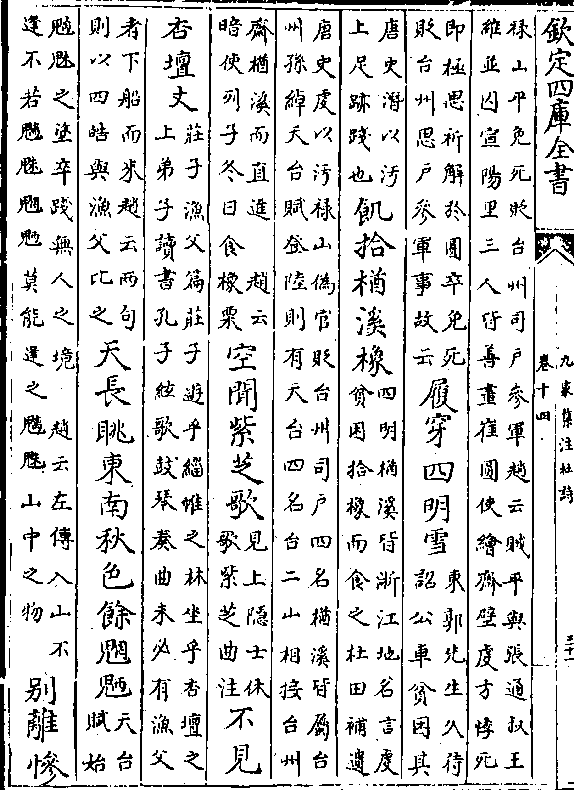 欽定四庫全書
九家集注杜詩
卷十四
祿山平免死貶台州司戶參軍趙云賊平與張通叔王
維並囚宣陽里三人皆善畫崔圓使繪齋壁虔方悸死
即極思祈解於圓卒免死
貶台州思戶參軍事故云
履穿四明雪
東郭先生久待
詔公車貧困其
唐史潛以汚
上足跡踐也
飢拾楢溪橡
四明楢溪皆浙江地名言虔
貧困拾橡而食之杜田補遺
唐史虔以汚祿山偽官貶台州司戶四名楢溪皆屬台
州孫綽天台賦登陸則有天台四名台二山相接台州
齊楢溪而直進 趙云
暗使列子冬日食橡栗
空聞紫芝歌
見上隱士休
歌紫芝曲注
不見
杏壇丈
莊子漁父篇莊子遊乎緇帷之林坐乎杏壇之
上弟子讀書孔子絃歌鼓琴奏曲未必有漁父
者下船而來趙云兩句
則以四皓與漁父比之
天長眺東南秋色餘魍魎
天台
賦始
魑魅之塗卒踐無人之境 趙云左傳入山不
逢不若魑魅魍魎莫能逢之魑魅山中之物
別離慘